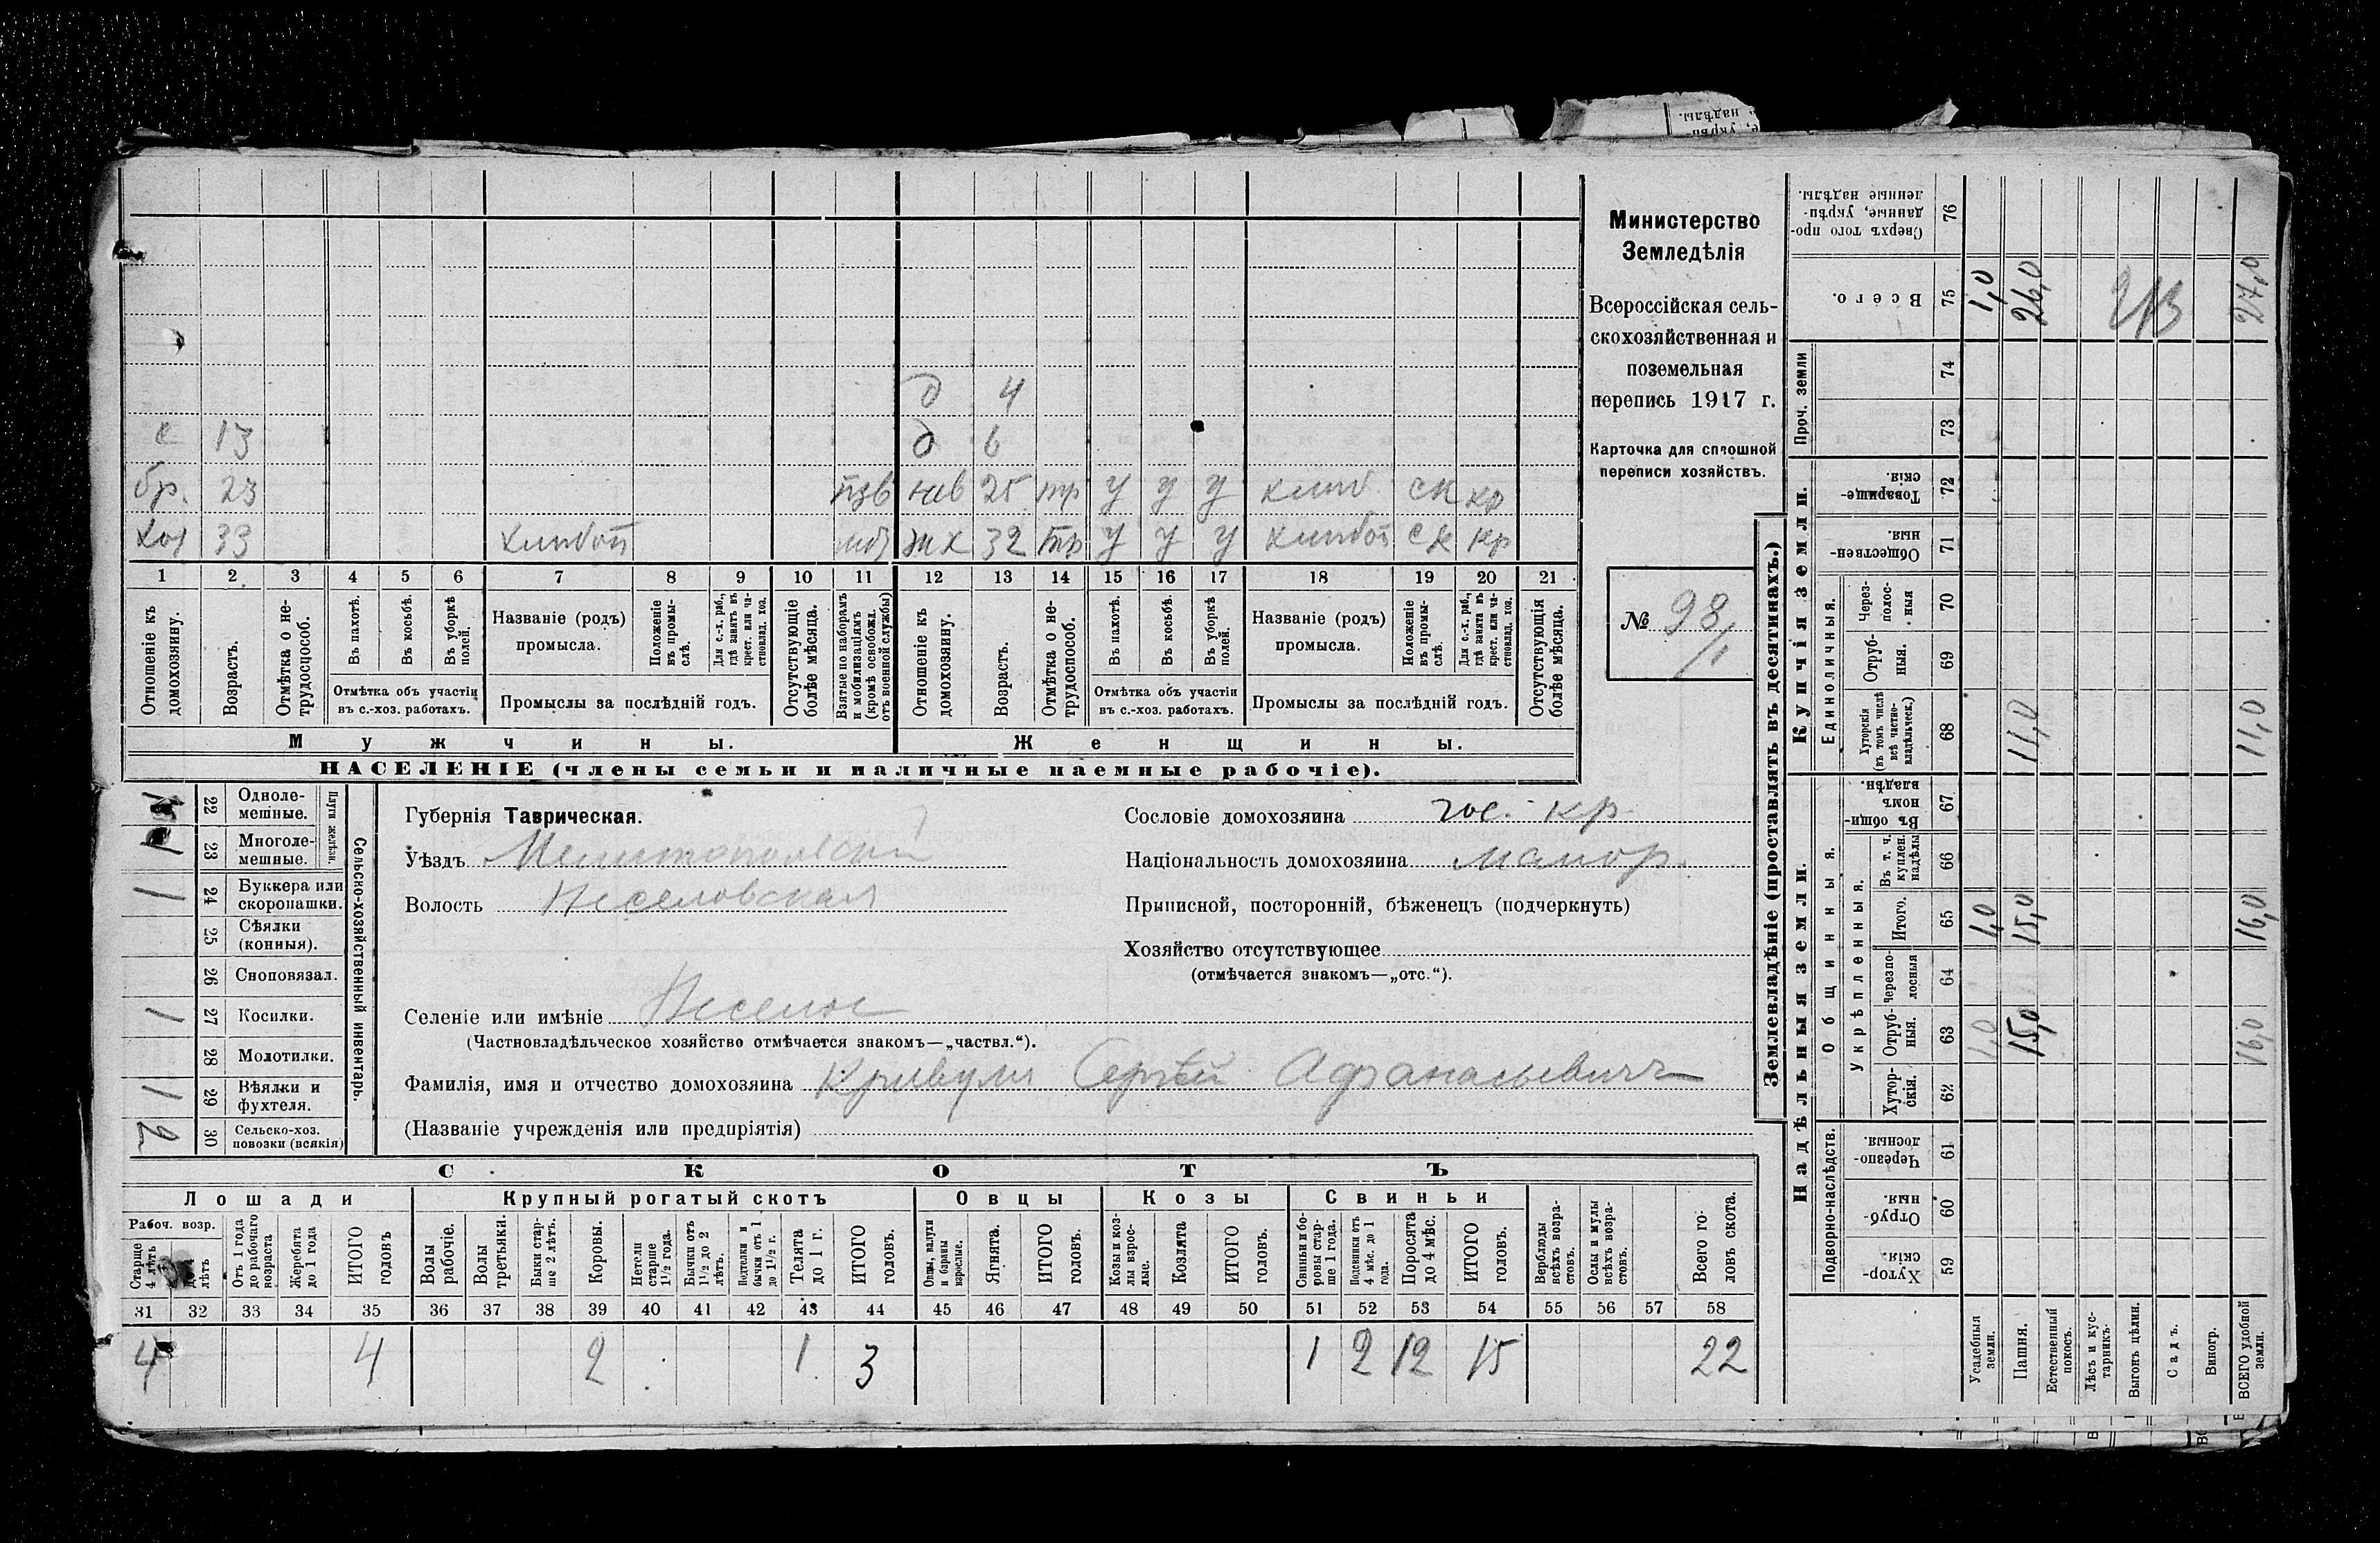 Министерство
Земледѣлія
Всероссійская сель-
скохозяйственная и
поземельная
перепись 1917 г.
Карточка для сплошной
переписи хозяйствъ.
№ 98/1
д 4
с 13 д 6
бр. 23 взв нев 25 тр у у у хлиб. ск кр
хоз 33 хлибоп моб жх 32 бтр у у у хлибоп ск кр
1 2 3 4 5 6 7 8 9 10 11 12 13 14 15 16 17 18 19 20 21
Отношеніе къ домохозяину.
Возрастъ.
Отмѣтка о не-трудоспособ.
Въ пахотѣ.
Въ косьбѣ.
Въ уборкѣ полей.
Отмѣтка объ участіи въ с.-хоз. работахъ.
Названіе (родъ) промысла.
Положеніе въ промы-слѣ.
Для с.-х. раб., гдѣ занятъ въ крест. или ча-стновлад. хоз.
Промыслы за послѣдній годъ.
Отсутствующіе болѣе мѣсяца.
Взятые по наборамъ и мобилизаціямъ (кромѣ освобожд. отъ военной службы)
Отношеніе къ домохозяину.
Возрастъ.
Отмѣтка о не-трудоспособ.
Въ пахотѣ.
Въ косьбѣ.
Въ уборкѣ полей.
Отмѣтка объ участіи въ с.-хоз. работахъ.
Названіе (родъ) промысла.
Положеніе въ промы-слѣ.
Для с.-х. раб., гдѣ занята въ крест. или ча-стновлад. хоз.
Промыслы за послѣдній годъ.
Отсутствующія болѣе мѣсяца.
Мужчины.
Женщины.
НАСЕЛЕНІЕ (члены семьи и наличные наемные рабочіе).
Сельско-хозяйственный инвентарь.
Плуги желѣзн.
22 Одноле-мешные.
1 23 Многоле-мешные.
1 24 Буккера или скоропашки.
25 Сѣялки (конныя).
26 Сноповязал.
1 27 Косилки.
28 Молотилки.
1 29 Вѣялки и фухтеля.
2 30 Сельско-хоз. повозки (всякія)
Губернія Таврическая.
Уѣздъ Мелитопольскій
Волость Веселовская
Сословіе домохозяина гос. кр.
Національность домохозяина малор.
Приписной, посторонній, бѣженецъ (подчеркнуть)
Хозяйство отсутствующее
(отмѣчается знакомъ—„отс.“).
Селеніе или имѣніе Веселое
(Частновладѣльческое хозяйство отмѣчается знакомъ—„частвл.“).
Фамилія, имя и отчество домохозяина Кривуля Сергѣй Афанасьевичъ
(Названіе учрежденія или предпріятія)
СКОТЪ
Лошади Крупный рогатый скотъ Овцы Козы Свиньи
Рабоч. возр.
Старше 4 лѣтъ
до 4 лѣтъ
Отъ 1 года до рабочаго возраста
Жеребята до 1 года
ИТОГО головъ
Волы рабочіе.
Волы третьяки.
Быки стар-ше 2 лѣтъ.
Коровы.
Нетели старше 1½ года.
Бычки отъ 1½ до 2 лѣтъ.
Подтелки и бычки отъ 1 до 1½ г.
Телята до 1 г.
ИТОГО головъ.
Овцы, валухи и бараны взрослые.
Ягнята.
ИТОГО головъ.
Козы и коз-лы взрос-лые.
Козлята
ИТОГО головъ.
Свиньи и бо-ровы стар-ше 1 года.
Подсвинки отъ 4 мѣс. до 1 года.
Поросята до 4 мѣс.
ИТОГО головъ.
Верблюды всѣхъ возра-стовъ.
Ослы и мулы всѣхъ возра-стовъ.
Всего го-ловъ скота.
31 32 33 34 35 36 37 38 39 40 41 42 43 44 45 46 47 48 49 50 51 52 53 54 55 56 57 58
4 4 2 1 3 1 2 12 15 22
Землевладѣніе (проставлять въ десятинахъ.)
Надѣльныя земли.
Купчія земли.
Проч. земли
Подворно-наслѣдств.
Общинныя.
Укрѣпленныя.
Единоличныя.
Сверхъ того про-данные, укрѣп-ленные надѣлы. 76
Всего. 75 1,0 26,0 27,0
74
73
Товарище-скія 72
Обществен-ныя. 71
Через-полос-ныя 70
Отруб-ныя. 69
Хуторскія (въ томъ числѣ всѣ частно-владѣльческ.) 68 11,0 11,0
Въ общин-номъ владѣн. 67
Въ т. ч. куплен. надѣлы 66
Итого. 65 1,0 15,0 16,0
Черезпо-лосныя 64
Отруб-ныя. 63 1,0 15,0 16,0
Хутор-скія. 62
Черезпо-лосныя. 61
Отруб-ныя. 60
Хутор-скія. 59
Усадебныя земли.
Пашня.
Естественный покосъ.
Лѣсъ и кус-тарникъ.
Выгонъ цѣлин.
Садъ.
Виногр.
ВСЕГО удобной земли.